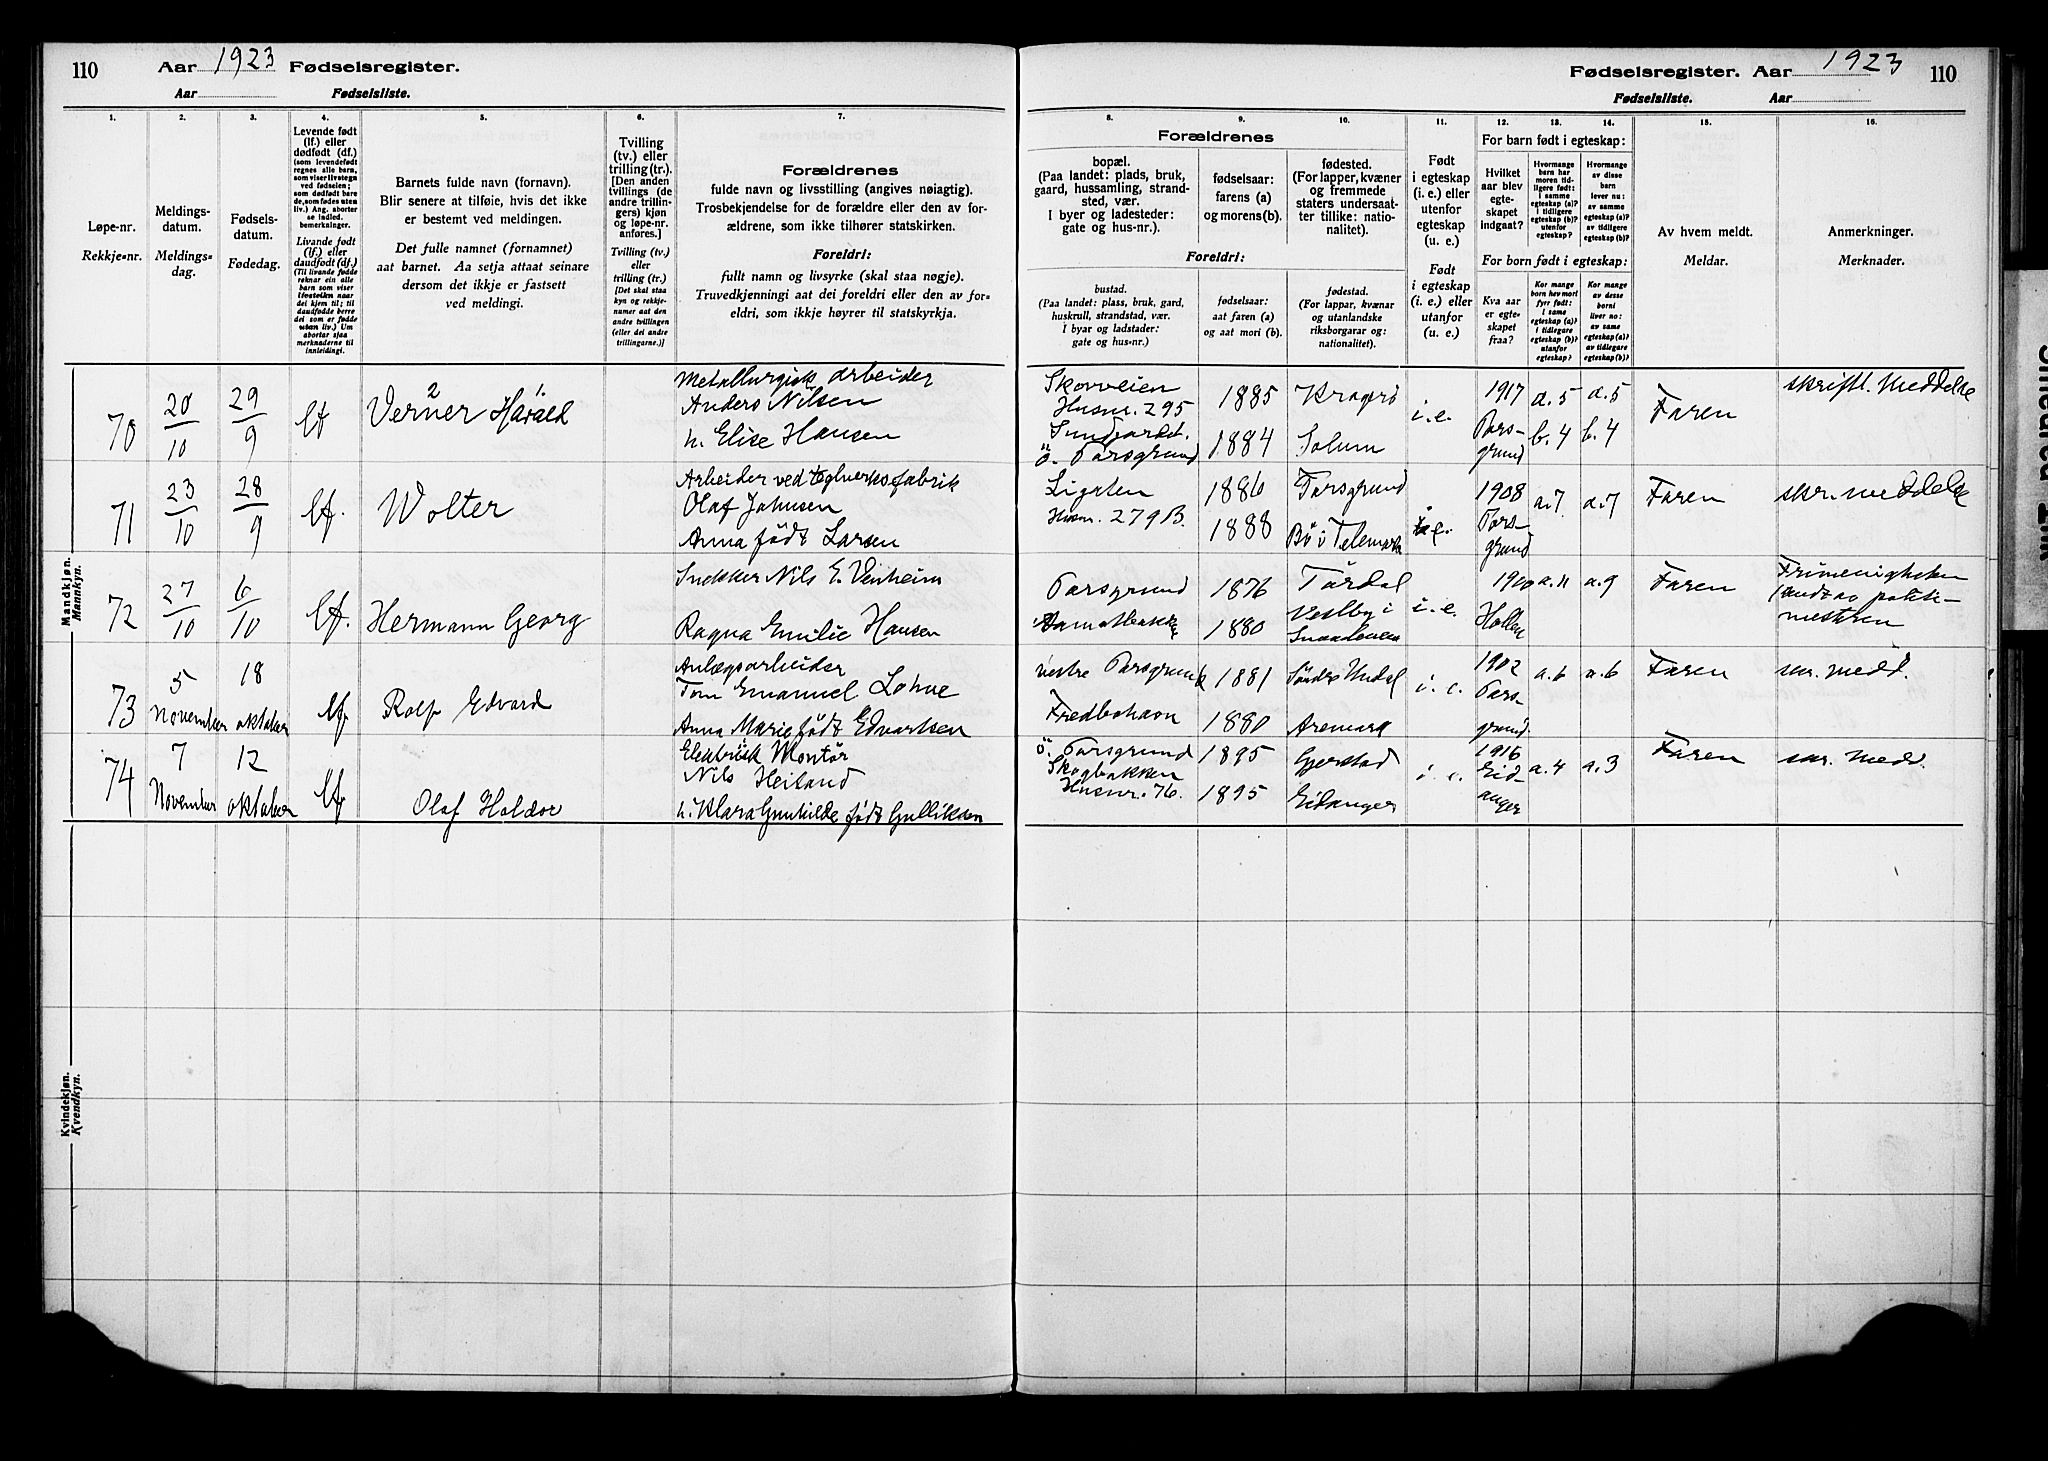 110 Aar 1923 Fødselsregister.
Aar Fødselsliste.
Fødselsregister. Aar 1923 110
Fødselsliste. Aar
1. 2. 3. 4. 5. 6. 7.
Løpe-nr.
Rekkje-nr.
Meldings-
datum.
Meldings-
dag.
Fødsels-
datum.
Fødedag.
Levende født
(lf.) eller
dødfødt (df.)
(som levendefødt
regnes alle barn,
som viser livstegn
ved fødselen;
som dødfødt bare
de, som fødes uten
liv.) Ang. aborter
se indled.
bemerkninger.
Livande født
(lf.) eller
daudfødt (df.)
(Til livande fødde
reknar ein alle
barn som viser
livsteikn naar
dei kjem til; til
daudfødde berre
dei som er fødde
utan liv.) Um
abortar sjaa
merknaderne til
innleidingi.
Barnets fulde navn (fornavn).
Blir senere at tilføie, hvis det ikke
er bestemt ved meldingen.
Det fulle namnet (fornamnet)
aat barnet. Aa setja attaat seinare
dersom det ikkje er fastsett
ved meldingi.
Tvilling
(tv.) eller
trilling(tr.).
[Den anden
tvillings (de
andre trillin-
gers) kjøn
og løpe-nr.
anføres.]
Tvilling (tv.)
eller
trilling (tr.)
[Det skal staa
kyn og rekkje-
numer aat den
andre tvillingen
(eller dei andre
trillingarne.)]
Forældrenes
fulde navn og livsstilling (angives nøiagtig).
Trosbekjendelse for de forældre eller den av for-
ældrene, som ikke tilhører statskirken.
Foreldri:
fullt namn og livsyrke (skal staa nøgje).
Truvedkjenningi aat dei foreldri eller den av for-
eldri, som ikkje høyrer til statskyrkja.
8. 9. 10. 11. 12. 13. 14. 15. 16.
Forældrenes
bopæl.
(Paa landet: plads, bruk,
gaard, hussamling, strand-
sted, vær.
I byer og ladesteder:
gate og hus-nr.).
fødselsaar:
farens (a)
og morens(b).
fødested.
(For lapper, kvæner
og fremmede
staters undersaat-
ter tillike: natio-
nalitet).
Foreldri:
bustad.
(Paa landet: plass, bruk, gard,
huskrull, strandstad, vær.
I byar og ladstader:
gate og hus-nr.)
fødselsaar:
aat faren (a)
og aat mori (b).
fødestad.
(For lappar, kvænar
og utanlandske
riksborgarar og:
nationalitet).
Født
i egteskap
(i. e.) eller
utenfor
egteskap
(u. e.)
Født
i egteskap
(i. e.) eller
utanfor
(u. e.)
For barn født i egteskap:
Hvilket
aar blev
egte-
skapet
indgaat?
Hvormange
barn har
moren tid-
ligere født:
i samme
egteskap (a)?
i tidligere
egteskap (b)?
utenfor
egteskap?
Hvormange
av disse
barn
lever nu:
av samme
egteskap (a)?
av tidligere
egteskap (b)?
For born født i egteskap:
Kva aar
er egte-
skapet
fraa?
Kor mange
born hev mori
fyrr født:
i same
egteskap (a)?
i tidlegare
egteskap (b)?
utanfor
egteskap?
Kor mange
av desse
borni
liver no:
av same
egteskap (a)?
av tidlegare
egteskap (b)?
Av hvem meldt.
Meldar.
Anmerkninger.
Merknader.
Mandkjøn.
Mannkyn.
70 20/10 29/9 lf Verner Harald
Metallurgisk arbeider
Anders Nilsen
h. Elise Hansen
Skovveien
Husnr. 295
Ö. Porsgrund
1885
1884
Kragerö
Solum
i.e.
1917
Pors-
grund
a. 5
b. 4
a. 5
b. 4
Faren
skriftl. meddelse
71 23/10 28/9 lf. Wolter
Arbeider ved teglverksfabrik
Olaf Johnsen
Anna født Larsen
Husnr. 279 B.
1886
1888
Porsgrund
Bö i Telemark
i.e.
1908
Pors-
grund
a. 7
a. 7
Faren
skr. meddelse
72 27/10 6/10 lf. Hermann Georg
Snekker Nils E. Venheim
Ragna Emilie Hansen
Porsgrund
1876
1880
Tördal
Vestby i
i. e.
1900
Hollen
a. 11
a. 9
Faren
politi-
mesteren
73 5 November 18 oktober lf Rolf Edvard
Anlegsarbeider
Tom Emanuel Lohne
Anna Marie født Edvartsen
vestre Porsgrund
Fredbohavn
1881
1880
Söndre Undal
Aremark
i. e.
1902
Pors-
grund
a. 6
a. 6
Faren
skr. medd.
74 7 November 12 oktober lf Olaf Haldor
Elektrisk Montör
Nils Heiland
h. Klara Gunhilde født Gulliksen
ö. Porsgrund
Skogbakken
Husnr. 76.
1895
1895
Gjerstad
Eidanger
i. e.
1916
Eid-
anger
a. 4
a. 3
Faren
skr. medd.
Kvindekjøn.
Kvendkyn.